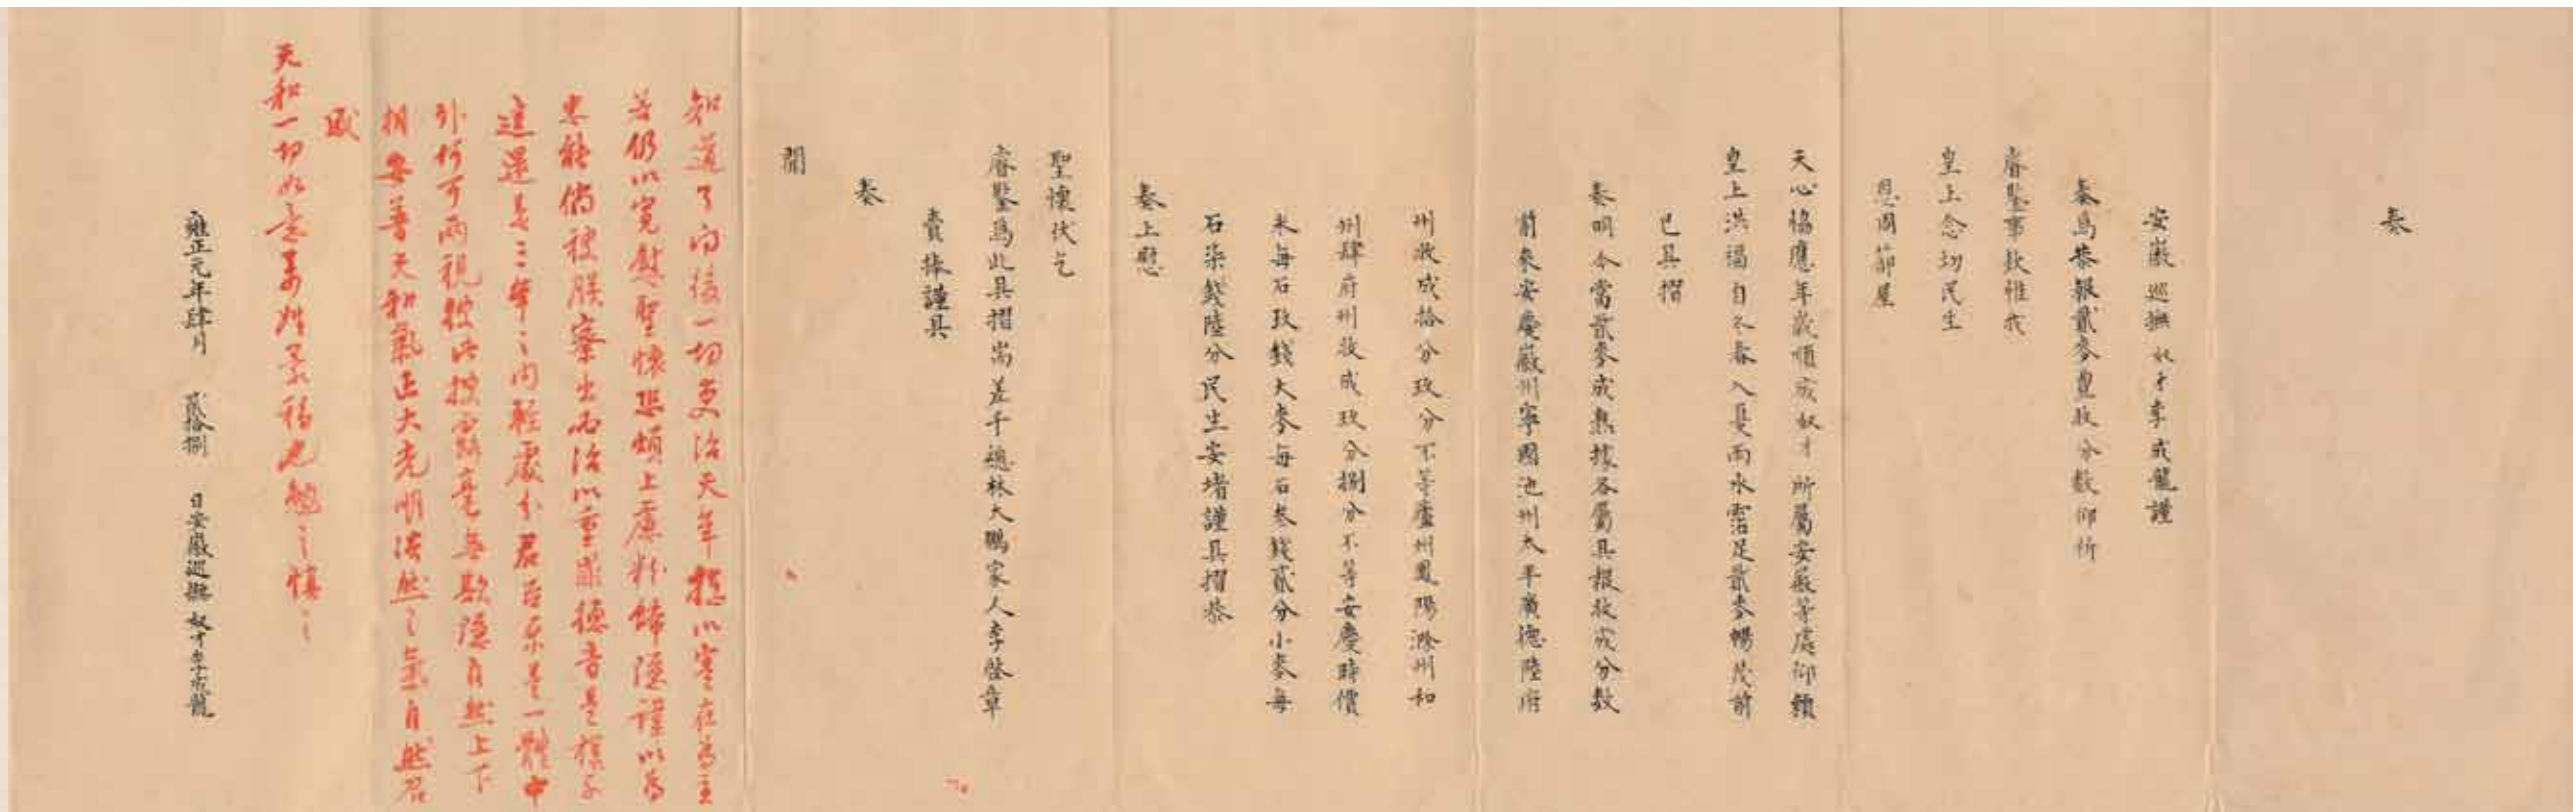 奏
安徽巡撫奴才李成龍謹
奏爲恭報貳麥豊收分數仰祈
睿鑒事欽惟我
皇上念切民生
恩周蔀屋
天心協應年歲順成奴才所屬安徽等處仰賴
皇上洪福自冬春入夏雨水霑足貳麥暢茂前
已具摺
奏明今當貳麥成熟據各屬具報收成分數
前來安慶徽州寧國池州太平廣德陸府
州收成拾分玖分不等廬州鳳陽滁州和
州肆府州收成玖分捌分不等安慶時價
米每石玖錢大麥每石叁錢貳分小麥每
石柒錢陸分民生安堵謹具摺恭
奏上慰
聖懷伏乞
睿鑒爲此具摺耑差千總林大鵬家人李啓章
賫捧謹具
奏
聞
知道了向後一切吏治天年摠以實在爲主
若仍以寬慰聖懷恐煩上慮粉飾隱諱以爲
忠能倘被朕察出而治以重罪德音是樣子
這還是三年之內輕處分君臣原是一體中
外何可兩視彼此披露毫無欺隱自然上下
相安普天和氣正大光明浩然之氣自然召
感
天和一切如意萬姓蒙福也勉之慎之
雍正元年肆月 貳拾捌 日安徽巡撫奴才李成龍